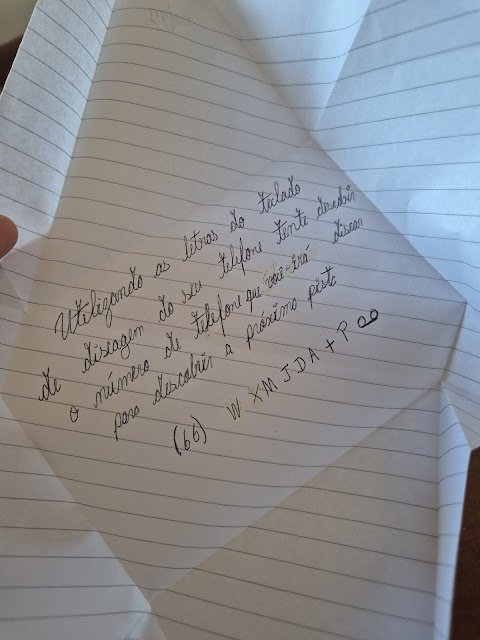 Utilizando as letras do teclado
de discagem do seu telefone tente descobrir
o número de telefone que você irá discar
para descobrir a próxima pista
(66) W X M J D A + P